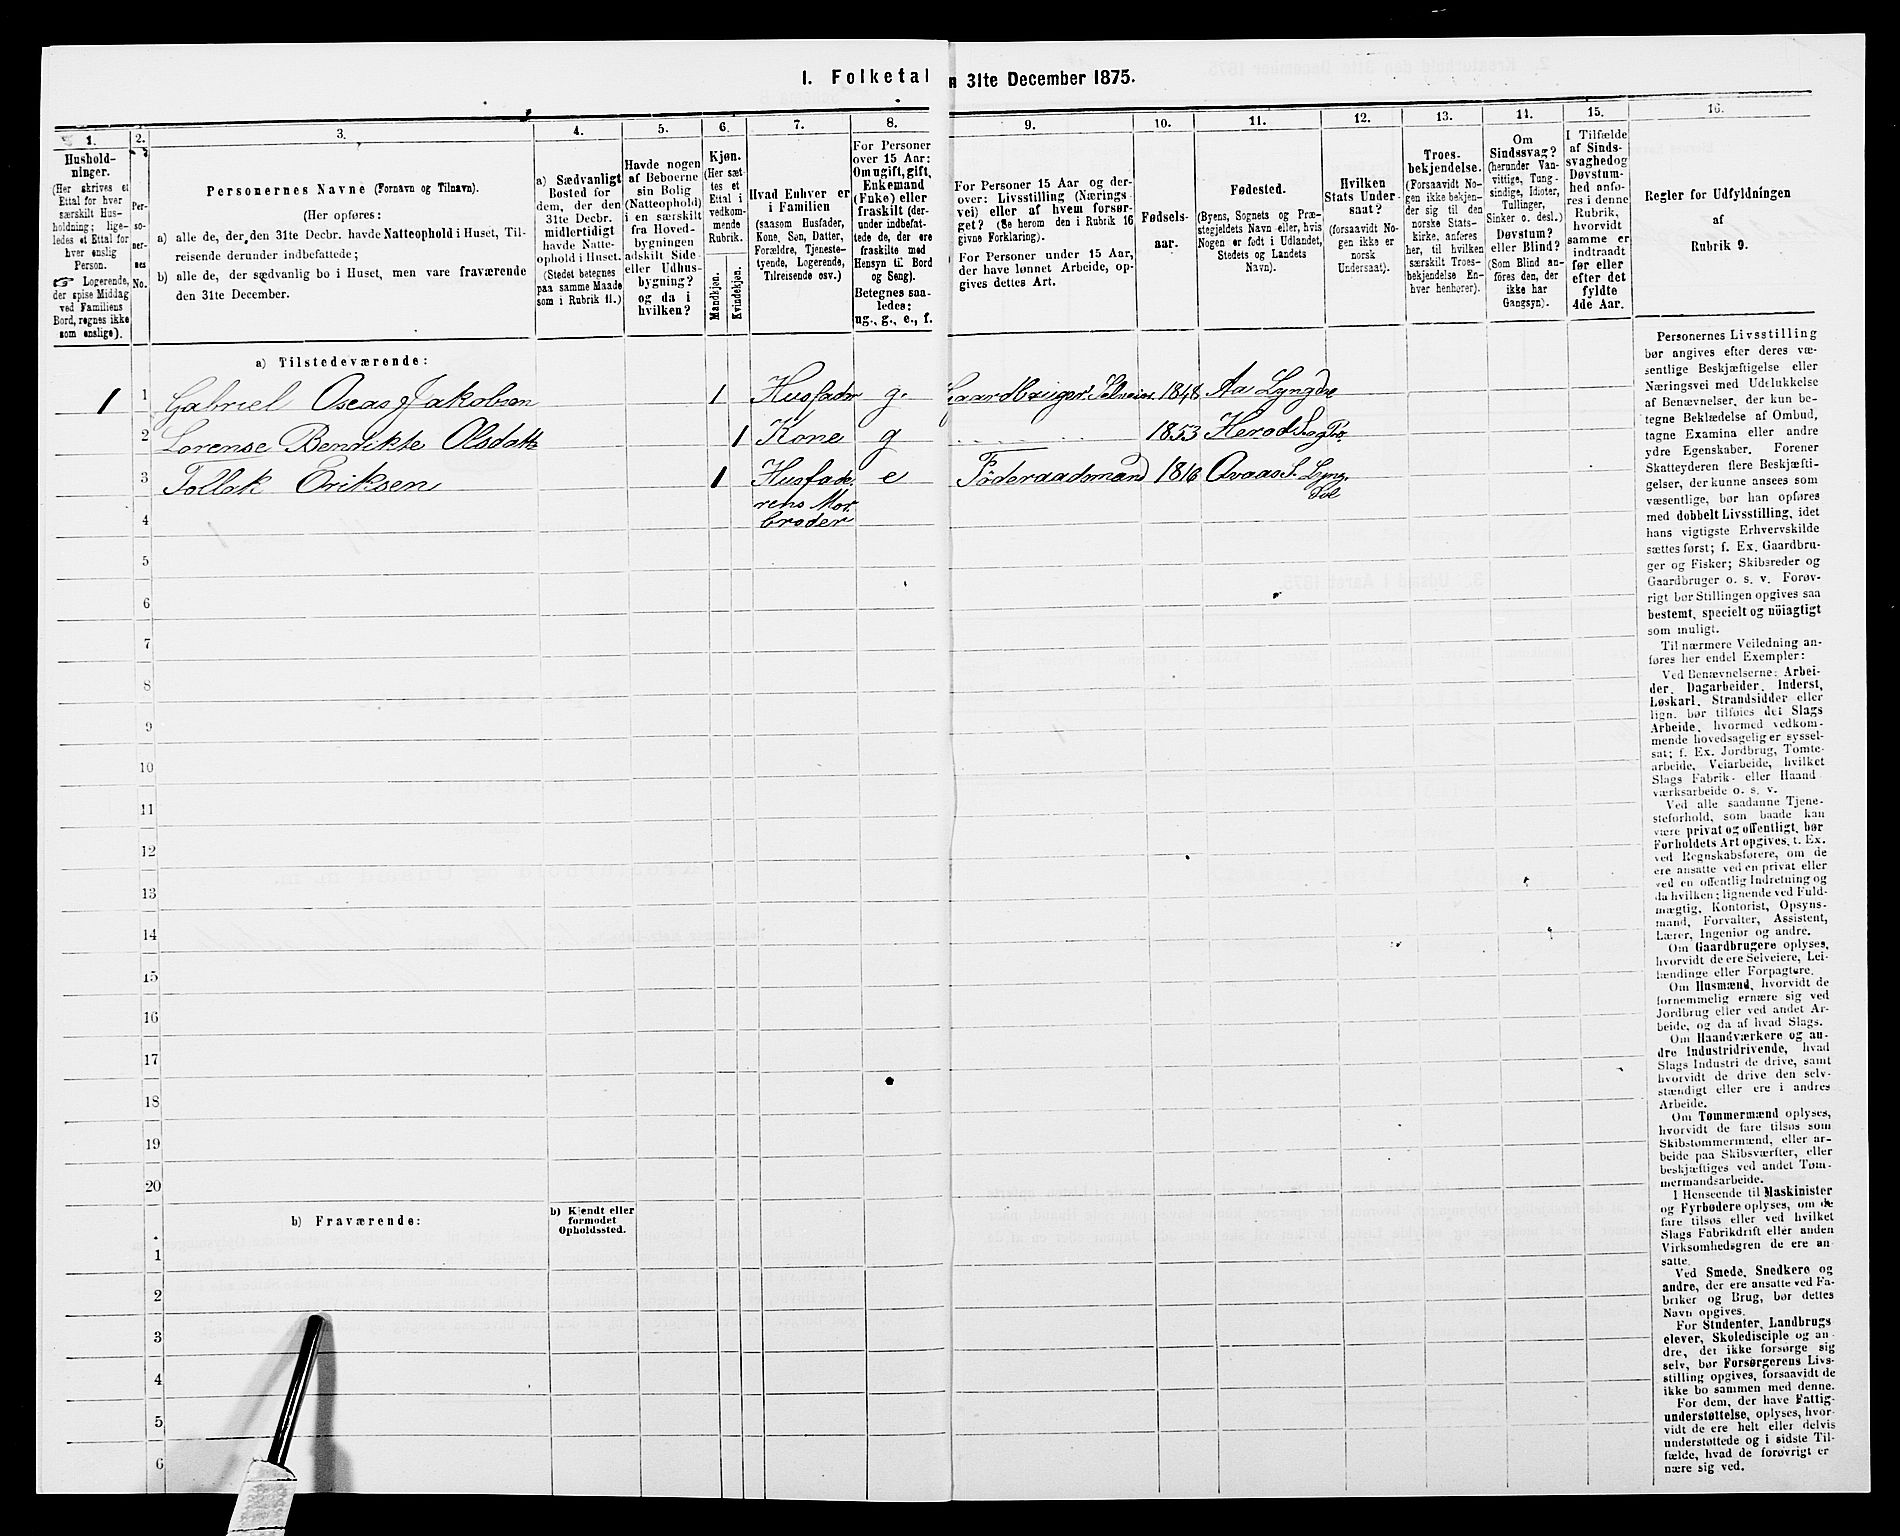 I. Folketal
n 31te December 1875.
1.
2.
3.
4.
5.
6.
7.
8.
9.
10.
11.
12.
13.
14.
15.
16.
Hushold-
ninger.
(Her skrives et
Ettal for hver
særskilt Hus-
holdning; lige-
ledes et Ettal for
hver enslig
Person.
☞ Logerende,
der spise Middag
ved Familiens
Bord, regnes ikke
som enslige).
Per-
so-
ner-
nes
No.
Personernes Navne (Fornavn og Tilnavn).
(Her opføres:
a) alle de, der den 31te Decbr. havde Natteophold i Huset, Til-
reisende derunder indbefattede;
b) alle de, der sædvanlig bo i Huset, men vare fraværende
den 31te December.
a) Sædvanligt
Bosted for
dem, der den
31te Decbr.
midlertidigt
havde Natte-
ophold i Huset.
(Stedet betegnes
paa samme Maade
som i Rubrik 11.)
Havde nogen
af Beboerne
sin Bolig
(Natteophold)
i en særskilt
fra Hoved-
bygningen
adskilt Side-
eller Udhus-
bygning?
og da i
hvilken?
Kjøn.
(Her sæt-
tes et
Ettal i
vedkom-
mende
Rubrik.
Mandkjøn.
Kvindekjøn.
Hvad Enhver er
i Familien
(saasom Husfader,
Kone, Søn, Datter,
Forældre, Tjeneste-
tyende, Logerende,
Tilreisende osv.)
For Personer
over 15 Aar:
Om ugift, gift,
Enkemand
(Enke) eller
fraskilt (der-
under indbefat-
tede de, der ere
fraskilte med
Hensyn til Bord
og Seng).
Betegnes saa-
ledes:
ug., g., e., f.
For Personer 15 Aar og der-
over: Livsstilling (Nærings-
vei) eller af hvem forsør-
get? (Se herom den i Rubrik 16
givne Forklaring).
For Personer under 15 Aar,
der have lønnet Arbeide, op-
gives dettes Art.
Fødsels-
aar.
Fødested.
(Byens, Sognets og Præ-
stegjeldets Navn eller, hvis
Nogen er født i Udlandet,
Stedets og Landets
Navn).
Hvilken
Stats Under-
saat?
(forsaavidt No-
gen ikke er
norsk
Undersaat).
Troes-
bekjendelse.
(Forsaavidt No-
gen ikke bekjen-
der sig til den
norske Stats-
kirke, anføres
her, til hvilken
særskilt Troes-
bekjendelse En-
hver henhører).
Om
Sindssvag?
(herunder Van-
vittige, Tung-
sindige, Idioter,
Tullinger,
Sinker o. desl.)
Døvstum?
eller Blind?
(Som Blind an-
føres den, der
ikke har
Gangsyn).
I Tilfælde
af Sinds-
svaghed og
Døvstum-
hed anfø-
res i denne
Rubrik,
hvorvidt
samme er
indtraadt
før eller
efter det
fyldte
4de Aar.
Regler for Udfyldningen
af
Rubrik 9.
a) Tilstedeværende:
1 1 Gabriel Oseas Jakobsen 1 Husfader g. Gaardbruger Selveier 1848 Aa Lyngdøl
2 Lorense Bendikte Olsdatter 1 Kone g 1853 Herod
3 Tollak Eriksen 1 Husfade- e Föderaadsmand 1816 Qvaas S. Lyng-
døl
rens Mor-
4 broder
5
6
7
8
9
10
11
12
13
14
15
16
17
18
19
20
b) Fraværende:
b) Kjendt eller
formodet
Opholdssted.
1
2
3
4
5
6
Personernes Livsstilling
bør angives efter deres væ-
sentlige Beskjæftigelse eller
Næringsvei med Udelukkelse
af Benævnelser, der kun be-
tegne Beklædelse af Ombud,
tagne Examina eller andre
ydre Egenskaber. Forener
Skatteyderen flere Beskjæfti-
gelser, der kunne ansees som
væsentlige, bør han opføres
med dobbelt Livsstilling, idet
hans vigtigste Erhvervskilde
sættes først; f. Ex. Gaardbru-
ger og Fisker; Skibsreder og
Gaardbruger o. s. v. Forøv-
rigt bør Stillingen opgives saa
bestemt, specielt og nöiagtigt
som muligt.
Til nærmere Veiledning an-
føres her endel Exempler:
Ved Benævnelserne: Arbei-
der, Dagarbeider, Inderst,
Løskarl, Strandsidder eller
lign. bør tilføies det Slags
Arbeide, hvormed vedkom-
mende hovedsagelig er syssel-
sat; f. Ex. Jordbrug, Tomte-
arbeide, Veiarbeide, hvilket
Slags Fabrik- eller Haand-
værksarbeide o. s. v.
Ved alle saadanne Tjene-
steforhold, som baade kan
være privat og offentligt, bør
Forholdets Art opgives, f. Ex.
ved Regnskabsførere, om de
ere ansatte ved en privat eller
ved en offentlig Indretning og
da hvilken; lignende ved Fuld-
mægtig, Kontorist, Opsyns-
mand, Forvalter, Assistent,
Lærer, Ingeniør og andre.
Om Gaardbrugere oplyses,
hvorvidt de ere Selveiere, Lei-
lændinge eller Forpagtere.
Om Husmænd, hvorvidt de
fornemmelig ernære sig ved
Jordbrug eller ved andet Ar-
beide, og da af hvad Slags.
Om Haandværkere og an-
dre Industridrivende, hvad
Slags Industri de drive, samt
hvorvidt de drive den selv-
stændigt eller ere i andres
Arbeide.
Om Tømmermænd oplyses,
hvorvidt de fare tilsøs som
Skibstømmermænd, eller ar-
beide paa Skibsværfter, eller
beskjæftiges ved andet Tøm-
mermandsarbeide.
I Henseende til Maskinister
og Fyrbødere oplyses, om de
fare tilsøs eller ved hvilket
Slags Fabrikdrift eller anden
Virksomhedsgren de ere an-
satte.
Ved Smede, Snedkere og
andre, der ere ansatte ved Fa-
briker og Brug, bør dettes
Navn opgives.
For Studenter, Landbrugs-
elever, Skoledisciple og an-
dre, det ikke forsørge sig
selv, bør Forsørgerens Livs-
stilling opgives, forsaavidt de
ikke bo sammen med denne.
For dem, der have Fattig-
understøttelse, oplyses, hvor-
vidt de ere helt eller delvis
understøttede og i sidste Til-
fælde, hvad de forøvrigt er
nære sig ved.